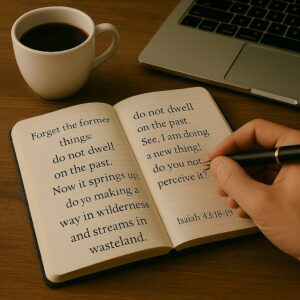 Forget the former
things:
do not dwell
on the past.
Now it springs up,
do yo making a
way in wilderness
and streams in
wasteland.
do not dwell
on the past.
See, I am doing
a new thing!
do you not
perceive it?
Isaiah 43:18-19